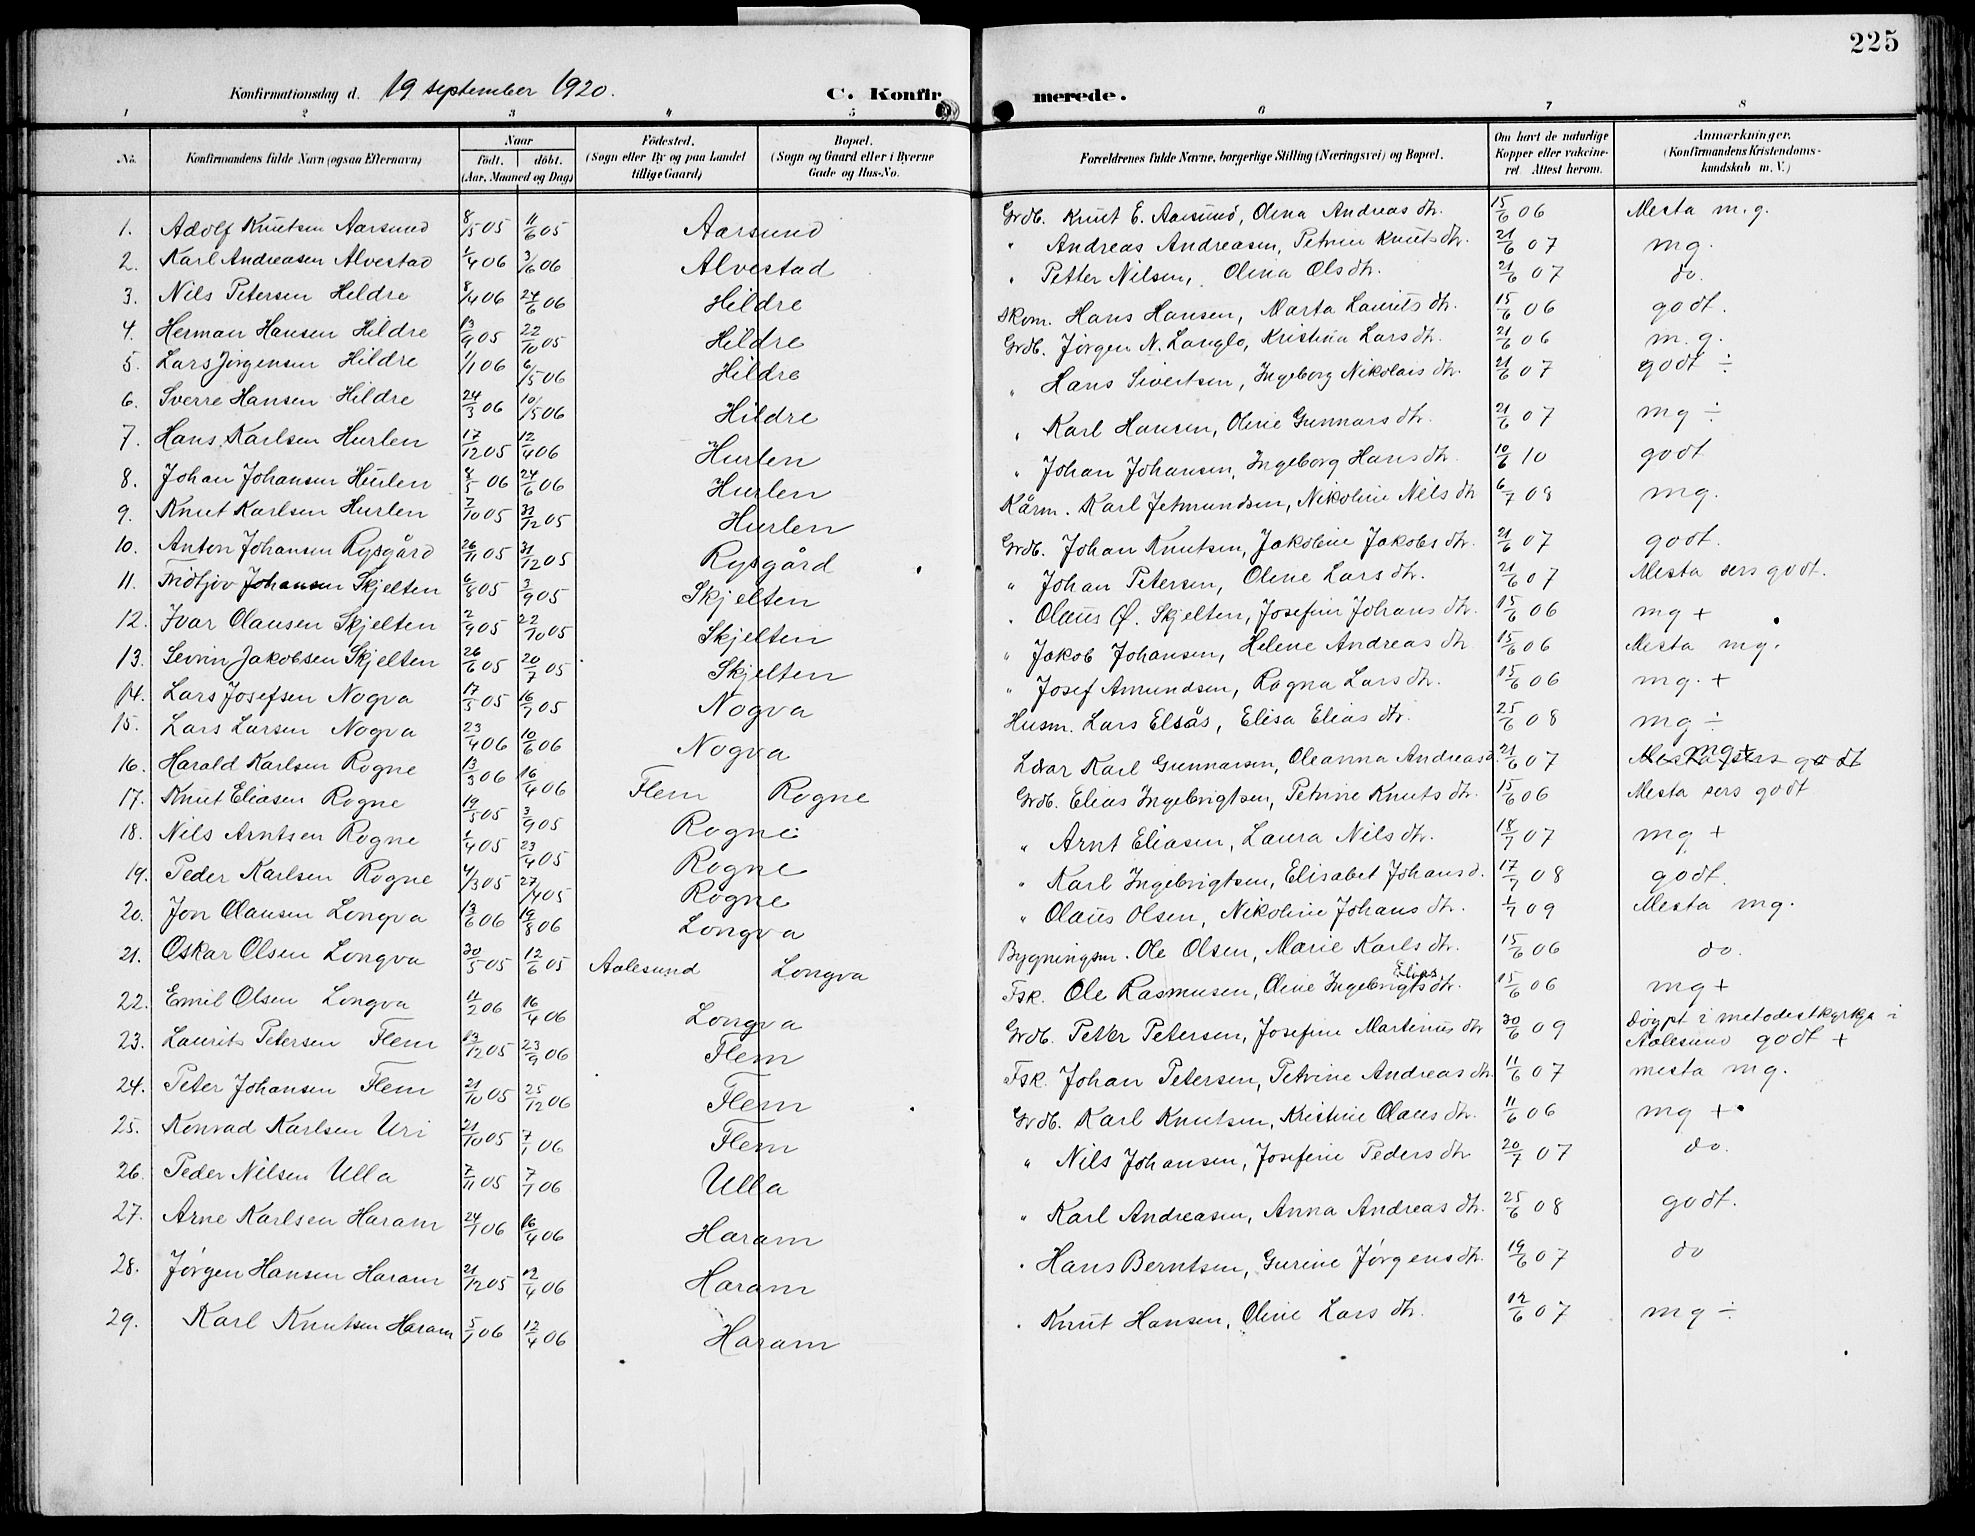 225
Konfirmationsdag d. 19 september 1920. C. Konfirmerede.
1 2 3 4 5 6 7 8
No. Konfirmandens fulde Navn (ogsaa Efternavn) Naar født. døbt. (Aar, Maaned og Dag) Fødested. (Sogn eller By og paa Landet tillige Gaard) Bopæl. (Sogn og Gaard eller i Byerne Gade og Hus-No. Forældrenes fulde Navne, borgerlige Stilling (Næringsvei) og Bopæl. Om havt de naturlige Kopper eller vakcineret. Attest herom. Anmærkninger. (Konfirmandens Kristendomskundskab m. V.)
1. Adolf Knutsen Aarsund 8/5 05 11/6 05 Aarsund Grdb. Knut E. Aarsund, Olina Andreas dtr. 15/6 06 Mesta m.g.
2. Karl Andreasen Alvestad 1/4 06 3/6 06 Alvestad " Andreas Andreasen, Petrine Knuts dtr. 21/6 07 mg.
3. Nils Petersen Hildre 8/4 06 24/6 06 Hildre " Petter Nilsen, Olina Ols dtr. 21/6 07 do.
4. Herman Hansen Hildre 13/9 05 22/10 05 Hildre Skom. Hans Hansen, Marta Laurits dtr. 15/6 06 godt.
5. Lars Jørgensen Hildre 1/1 06 6/5 06 Hildre Grdb. Jørgen N. Longlo, Kristina Lars dtr. 21/6 06 m.g.
6. Sverre Hansen Hildre 24/3 06 10/5 06 Hildre " Hans Sivertsen, Ingeborg Nikolais dtr. 21/6 07 godt ÷
7. Hans Karlsen Hurlen 17/12 05 12/4 06 Hurlen " Karl Hansen, Oline Gunnars dtr. 21/6 07 mg ÷
8. Johan Johansen Hurlen 8/5 06 24/6 06 Hurlen " Johan Johansen, Ingeborg Hans dtr. 10/6 10 godt
9. Knut Karlsen Hurlen 7/10 05 31/12 05 Hurlen Kårm. Karl Jetmundsen, Nikoline Nils dtr 6/7 08 mg.
10. Anton Johansen Rysgård 26/11 05 31/12 05 Rysgård Grdb. Johan Knutsen, Jakobine Jakobs dtr. 21/6 07 godt.
11. Fridtjov Johansen Skjelten 6/8 05 3/9 05 Skjelten " Johan Petersen, Oline Lars dtr. 21/6 07 Mesta sers godt.
12. Ivar Olausen Skjelten 2/9 05 22/10 05 Skjelten " Olaus Ø. Skjelten, Josefine Johans dtr. 15/6 06 mg +
13. Sevrin Jakobsen Skjelten 26/6 05 20/7 05 Skjelten " Jakob Johansen, Helene Andreas dtr 15/6 06 Mesta mg.
14. Lars Josefsen Nogva 17/5 05 16/7 05 Nogva " Josef Amundsen, Ragna Lars dtr. 15/6 06 mg. +
15. Lars Larsen Nogva 23/4 06 10/6 06 Nogva Husm. Lars Elsås, Elisa Elias dtr. 25/6 08 mg ÷
16. Harald Karlsen Rogne 13/3 06 16/4 06 Flem Rogne Lærar Karl Gunnarsen, Oleanna Andreas d. 21/6 07 mg+ Mesta sers godt
17. Knut Eliasen Rogne 19/5 05 3/9 05 Rogne Grdb. Elias Ingebrigtsen, Petrine Knuts dtr. 15/6 06 Mesta sers godt
18. Nils Arntsen Rogne 1/4 05 23/4 05 Rogne " Arnt Eliasen, Laura Nils dtr. 18/7 07 mg +
19. Peder Karlsen Rogne 4/3 05 27/4 05 Rogne " Karl Ingebrigtsen, Elisabet Johans d. 17/7 08 godt.
20. Jon Olausen Longva 13/6 06 19/8 06 Longva " Olaus Olsen, Nikoline Johans dtr. 1/7 09 Mesta mg.
21. Oskar Olsen Longva 30/5 05 12/6 05 Aalesund Longva Bygningsm. Ole Olsen, Marie Karls dtr. 15/6 06 do.
22. Emil Olsen Longva 11/2 06 16/4 06 Longva Fsk. Ole Rasmusen, Oline Ingebrigts Elias dtr. 15/6 06 mg +
23. Laurits Petersen Flem 13/12 05 23/9 06 Flem Grdb. Peter Petersen, Josefine Martinus dtr 30/6 09 døypt i metodistkyrkja i Aalesund godt +
24. Peter Johansen Flem 21/10 05 25/12 06 Flem Fsk. Johan Petersen, Petrine Andreas dtr. 11/6 07 mesta mg.
25. Konrad Karlsen Uri 21/10 05 7/1 06 Flem Grdb. Karl Knutsen, Kristine Olaus dtr. 11/6 06 mg +
26. Peder Nilsen Ulla 7/11 05 7/1 06 Ulla " Nils Johansen, Josefine Peders dtr 20/7 07 do.
27. Arne Karlsen Haram 24/1 06 16/4 06 Haram " Karl Andreasen, Anna Andreas dtr. 25/6 08 godt.
28. Jørgen Hansen Haram 21/12 05 12/4 06 Haram " Hans Berntsen, Gurine Jørgens dtr. 19/6 07 do
29. Karl Knutsen Haram 5/1 06 12/4 06 Haram " Knut Hansen, Oline Lars dtr. 12/6 07 mg ÷